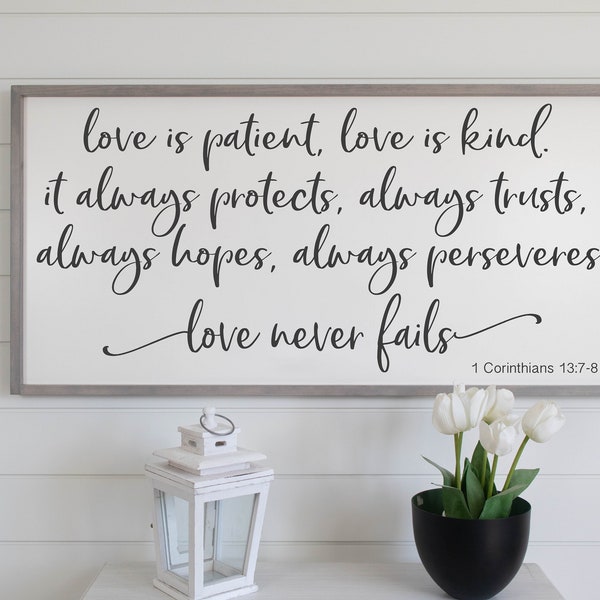 love is patient, love is kind.
it always protects, always trusts,
always hopes, always perseveres
love never fails
1 Corinthians 13:7-8